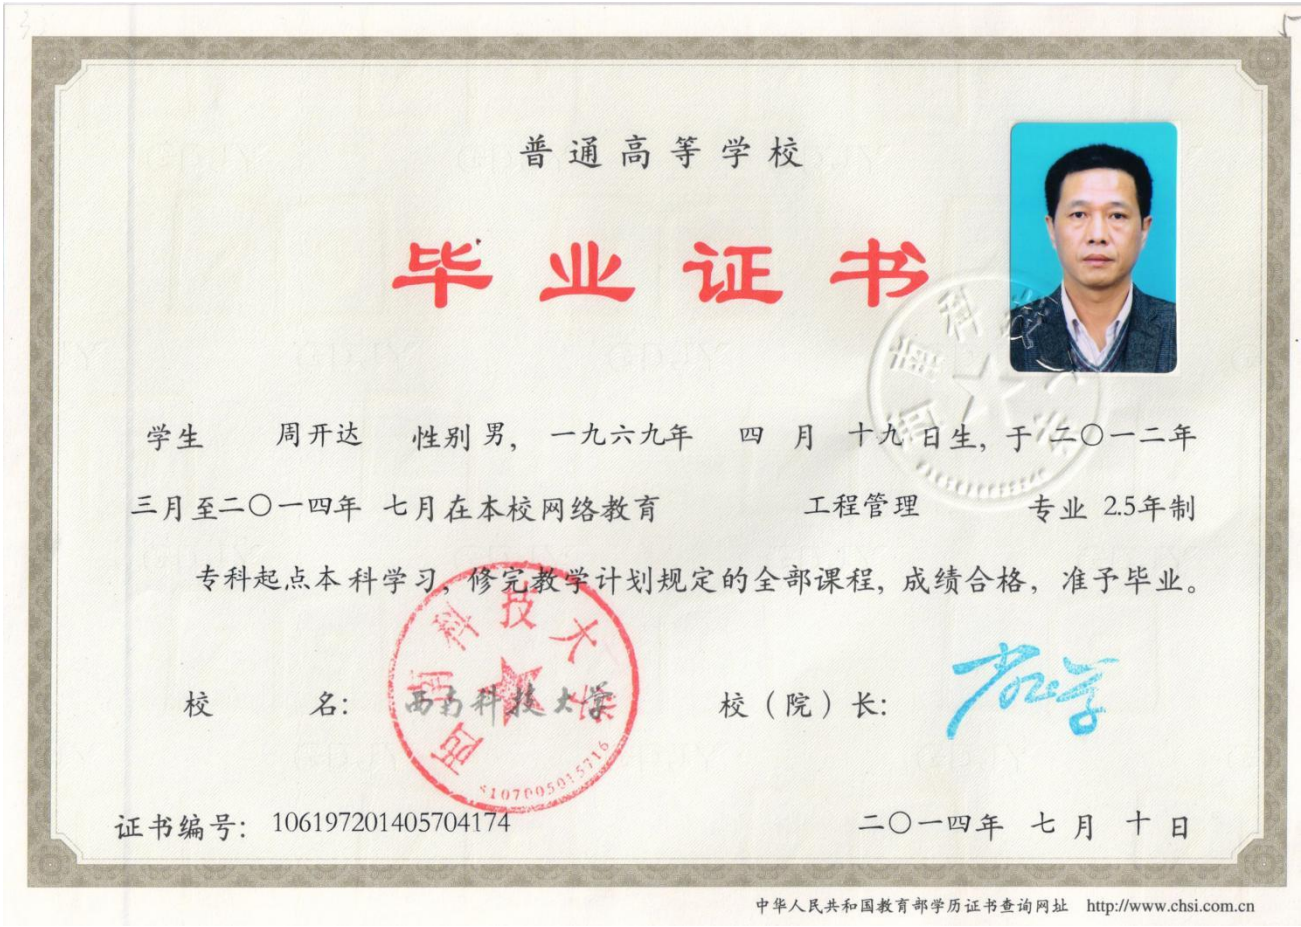 普通高等学校
毕业证书
学生 周开达 性别 男， 一九六九年 四 月 十九 日生，于 二〇一二年
三月至二〇一四年 七月在本校网络教育 工程管理 专业 2.5年制
专科起点本科学习，修完教学计划规定的全部课程，成绩合格，准予毕业。
校 名： 西南科技大学 校（院）长：
西南科技大学
西南科技大学
证书编号： 106197201405704174 二〇一四年 七 月 十 日
中华人民共和国教育部学历证书查询网址 http://www.chsi.com.cn